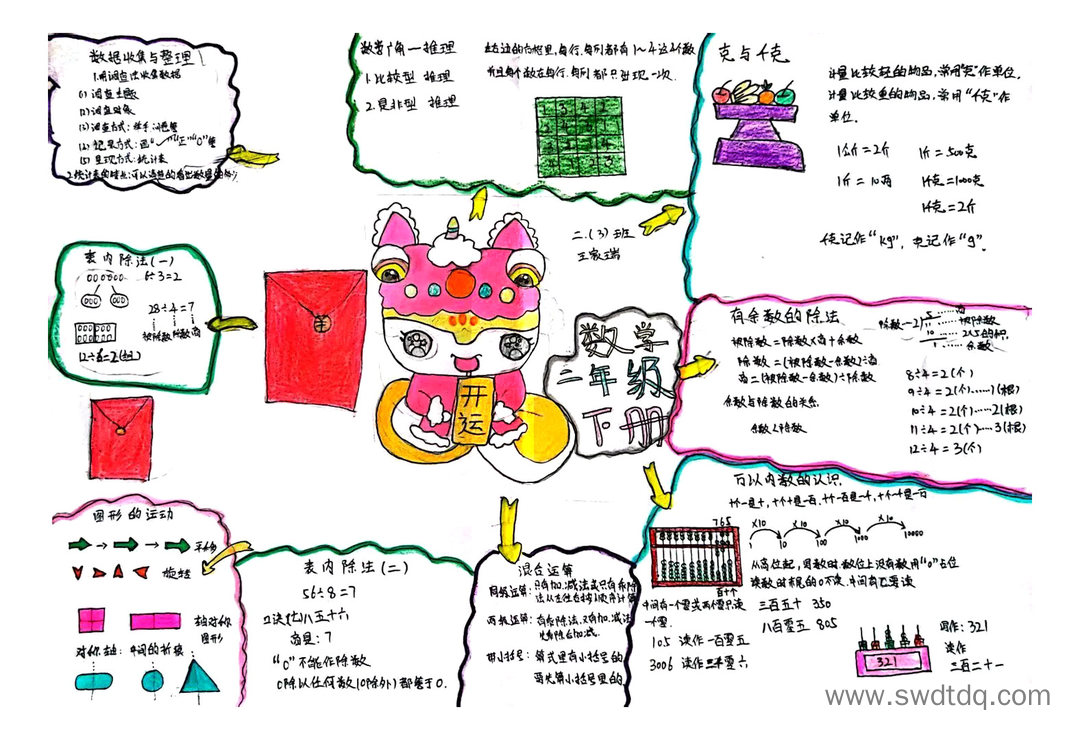 数据收集与整理
1.用调查法收集数据
(1) 调查主题
(2) 调查对象
(3) 调查方式：举手
(5) 呈现方式：统计表
数学广角—推理
1.比较型 推理
2.是非型 推理
在右边的方框里，每行、每列都有1～4这4个数
并且每个数在每行、每列都只出现一次.
克与千克
计量比较轻的物品，常用“克”作单位.
计量比较重的物品，常用“千克”作
单位.
1公斤=2斤 1斤=500克
1斤=10两 1千克=1000克
1千克=2斤
千克记作“kg”，克记作“g”.
二.(3)班
表内除法(一)
6÷3=2
28÷4=7
被除数 除数 商
数学
二年级
下册
开运
有余数的除法
被除数=除数×商+余数
除数=(被除数-余数)÷商
商=(被除数-余数)÷除数
余数与除数的关系
余数<除数
除数
商
被除数
2×5的积
余数
8÷4=2(个)
9÷4=2(个)……1(根)
10÷4=2(个)……2(根)
11÷4=2(个)……3(根)
12÷4=3(个)
图形的运动
平移
旋转
轴对称
图形
对称轴：中间的折痕
表内除法(二)
56÷8=7
口诀:七八五十六
商是：7
“0”不能作除数
0除以任何数(0除外)都等于0.
混合运算
同级运算：只有加.减法或只有乘除
法从左往右按顺序计算
两级运算：有乘除法.又有加.减法
先乘除后加减.
带小括号：算式里有小括号的
要先算小括号里的
万以内数的认识.
765
百十个
×10 ×10 ×10 ×10
1 10 100 1000 10000
中间有一个零或两个零只读
一个零.
105 读作 一百零五
3006 读作 三千零六
三百五十 350
八百零五 805
321
写作：321
读作
三百二十一
www.swdtdq.com